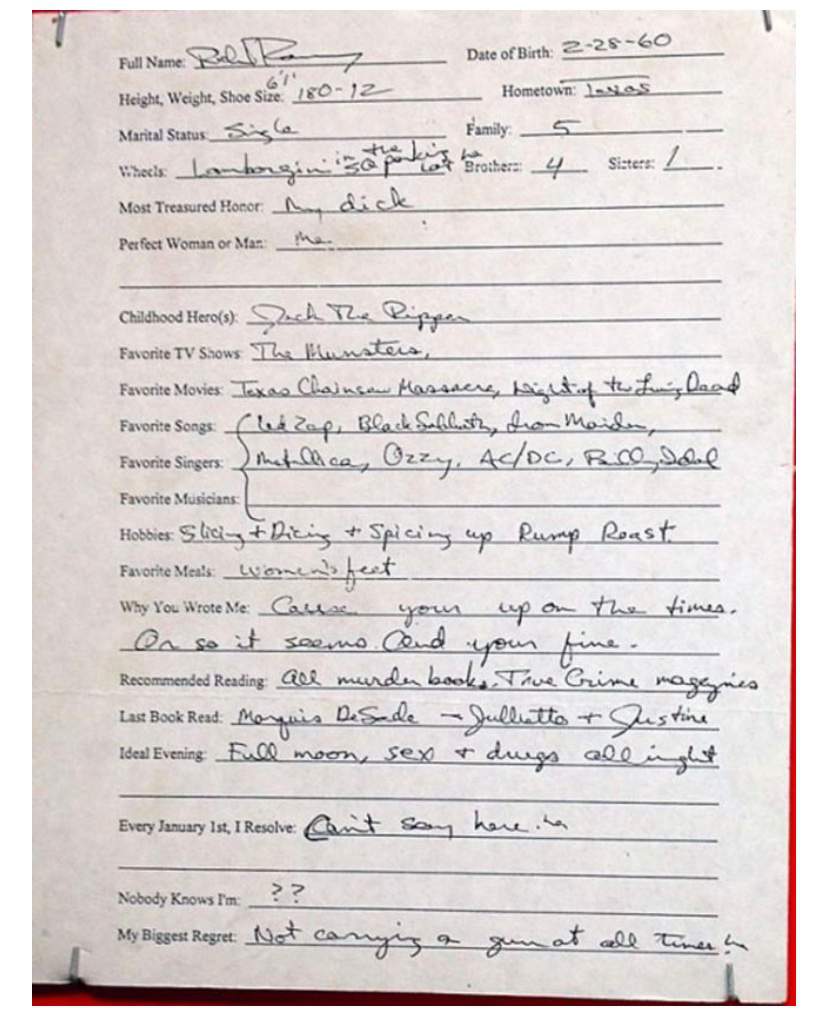 Full Name: Date of Birth: 2-28-60
Height, Weight, Shoe Size: 6'1" 180-12 Hometown: Texas
Marital Status: Single Family: 5
Wheels: Lamborgini in the SQ parking lot ha Brothers: 4 Sisters: 1
Most Treasured Honor: My dick
Perfect Woman or Man: Me.
Childhood Hero(s): Jack The Ripper
Favorite TV Shows: The Munsters,
Favorite Movies: Texas Chainsaw Massacre, Night of the Living Dead
Favorite Songs: Led Zep, Black Sabbath, Iron Maiden,
Favorite Singers: Metallica, Ozzy, AC/DC, Billy Idol
Favorite Musicians:
Hobbies: Slicing + Dicing + Spicing up Rump Roast.
Favorite Meals: women's feet
Why You Wrote Me: Cause your up on the times.
Or so it seems. And your fine.
Recommended Reading: All murder books, True Crime magazines
Last Book Read: Marquis DeSade - Julliette + Justine
Ideal Evening: Full moon, sex + drugs all night
Every January 1st, I Resolve: Can't say here. ha
Nobody Knows I'm: ??
My Biggest Regret: Not carrying a gun at all times ha